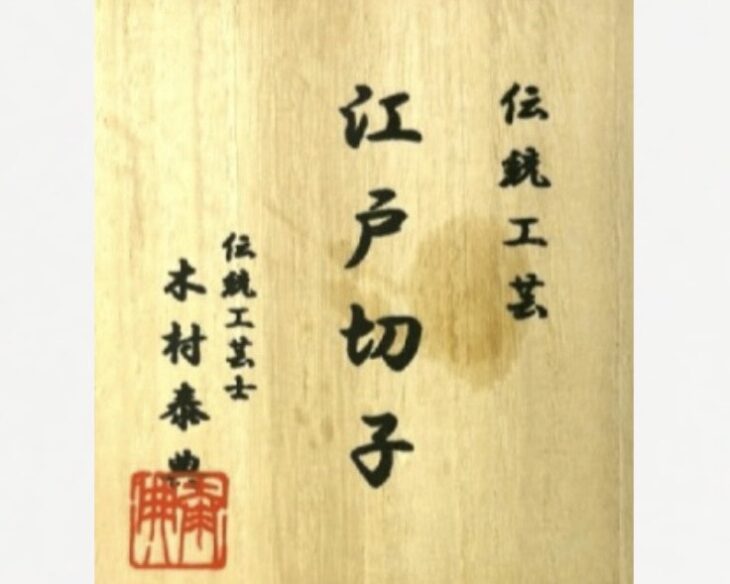 伝統工芸
江戸切子
伝統工芸士
木村泰典